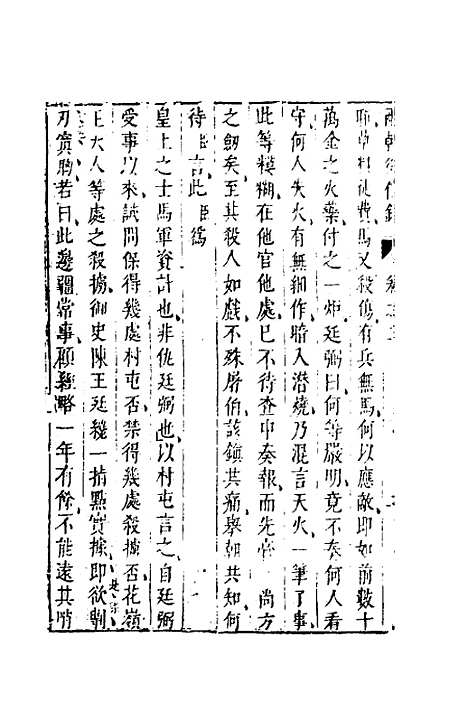 兩朝從信錄 卷之三
聊草料徒費馬又殺傷有兵無馬何以應敵即如前數十
萬金之火藥付之一炬廷弼曰何等嚴明竟不奏何人看
守何人失火有無細作暗入潛燒乃混言天火一筆了事
此等糢糊在他官他處已不待查中奏報而先嘗 尚方
之劒矣至其殺人如戲不殊屠伯該鎮共痛舉朝共知何
待臣言此臣爲
皇上之士馬軍資計也非仇廷弼也以村屯言之自廷弼
受事以來試問保得幾處村屯否禁得幾處殺擄否花嶺
王大人等處之殺擄御史陳王廷纔一指點實據即欲剚
刃實胸若曰此邊疆常事願經略一年有餘不能遠其哨